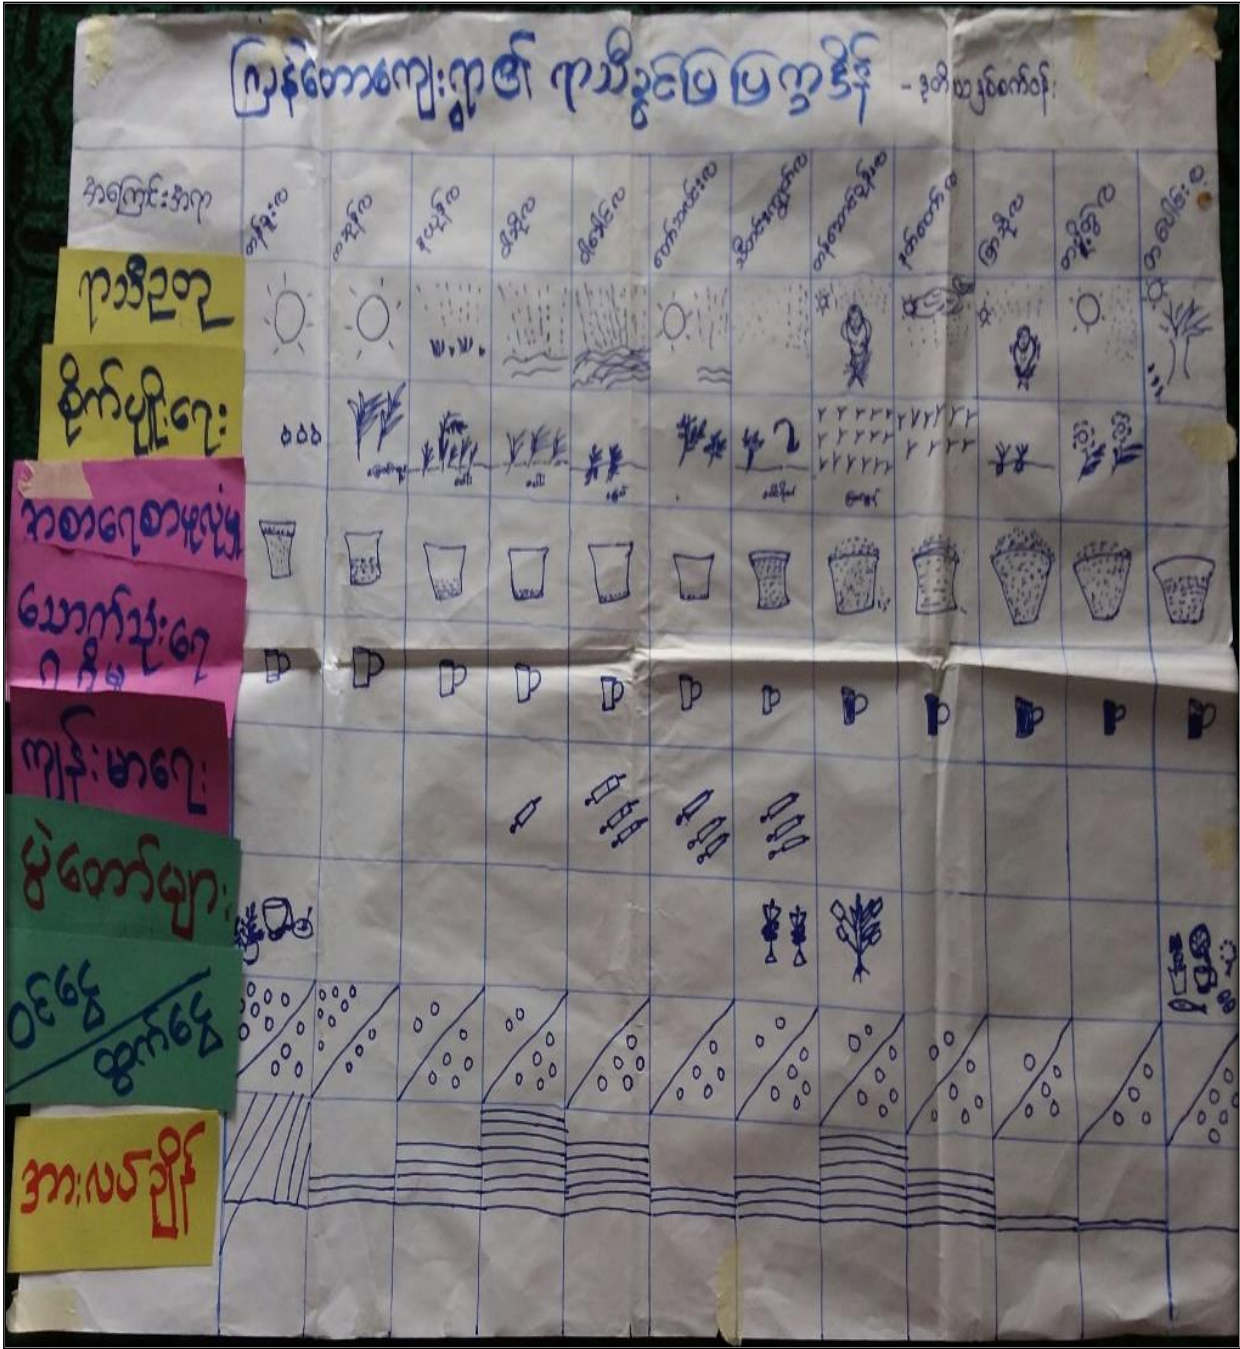 ကြိုန်တောကျေးရွာ၏ ရာသီခွင်ပြ ပြက္ခဒိန် - ဒုတိယနှစ်စက်ဝန်း
အကြောင်းအရာ တန်ခူးလ ကဆုန်လ နယုန်လ ဝါဆိုလ ဝါခေါင်လ တော်သလင်းလ သီတင်းကျွတ်လ တန်ဆောင်မုန်းလ နတ်တော်လ ပြာသိုလ တပို့တွဲလ တပေါင်းလ
ရာသီဥတု
စိုက်ပျိုးရေး
အစာရေစာဖူလုံမှု
သောက်သုံးရေ
ကျန်းမာရေး
ပွဲတော်များ
ဝင်ငွေ
ထွက်ငွေ
အားလပ်ချိန်